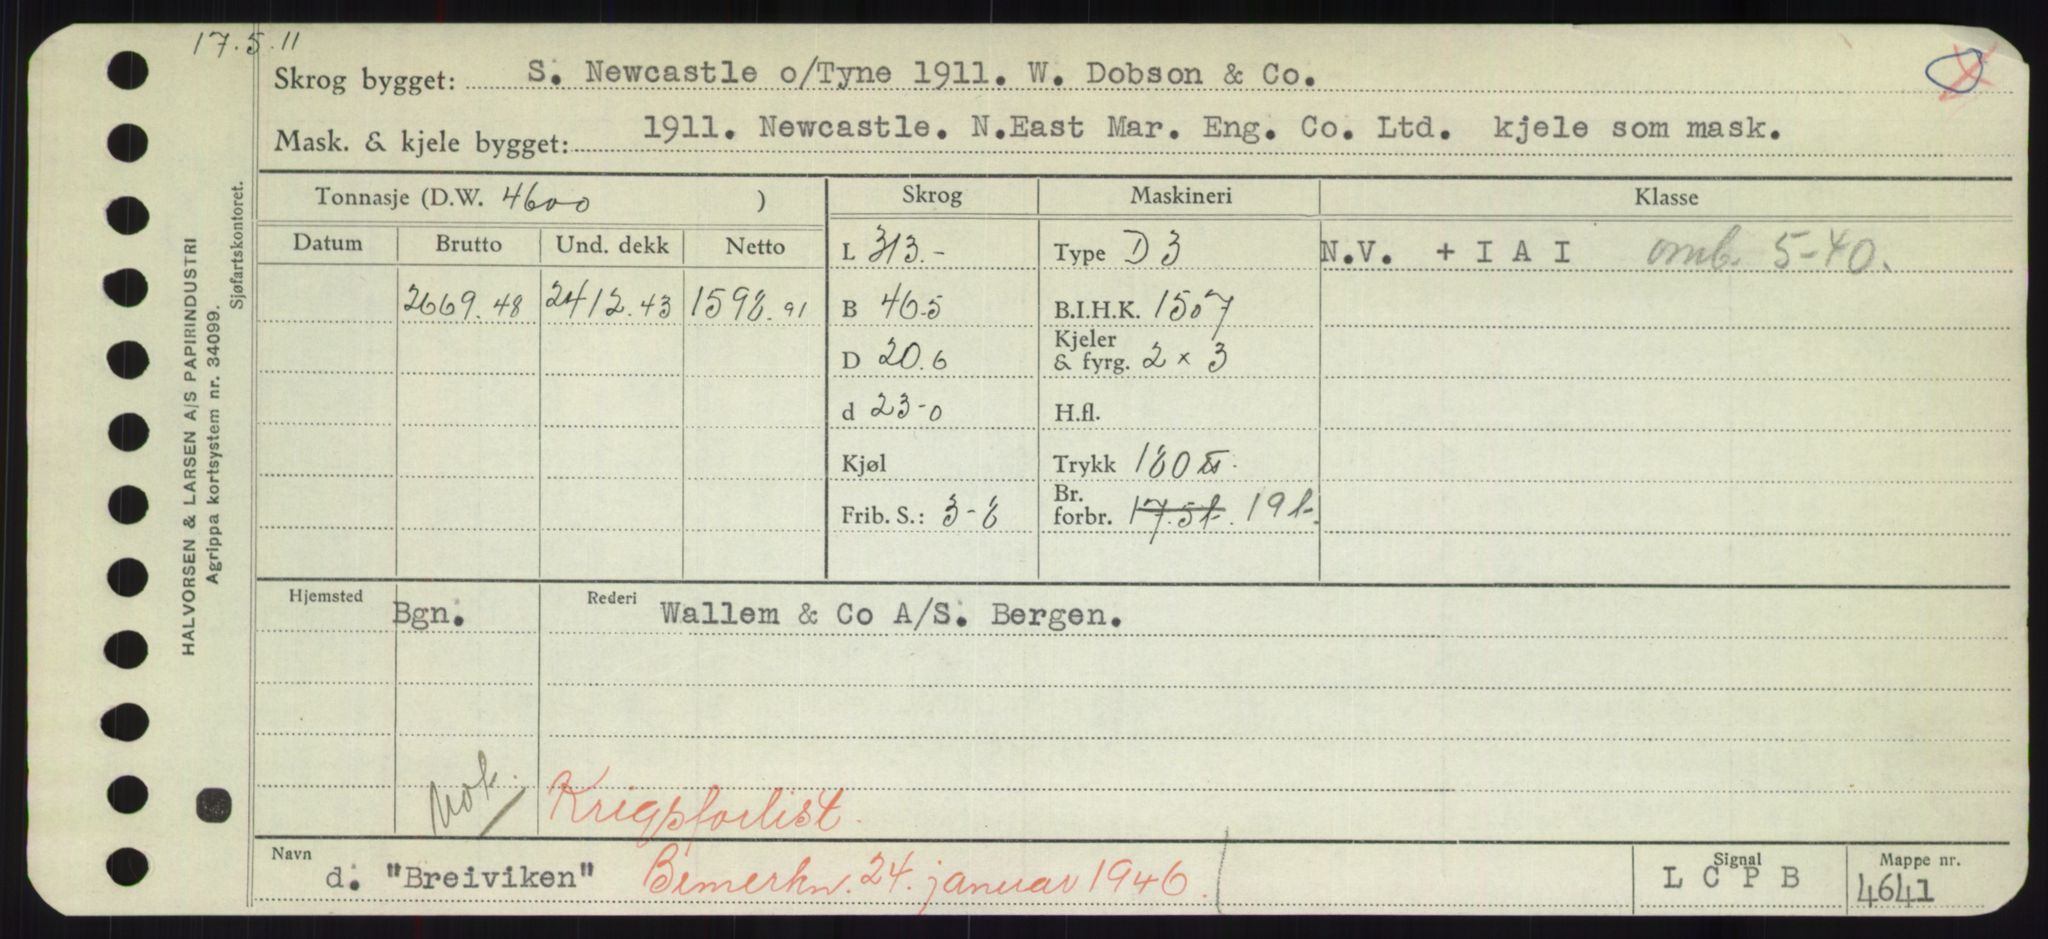 17.5.11
Skrog bygget: S. Newcastle o/Tyne 1911. W. Dobson & Co.
Mask. & kjele bygget: 1911. Newcastle. N.East Mar. Eng. Co. Ltd. kjele som mask.
Tonnasje (D.W. 4600 ) Skrog Maskineri Klasse
Datum Brutto Und. dekk Netto L 313.- Type D 3 N.V. + I A I omb. 5-40.
2669.48 2412.43 1598.91 B 46.5 B.I.H.K. 1507
D 20.6 Kjeler & fyrg. 2 x 3
d 23-0 H.fl.
Kjøl Trykk 180
Frib. S.: 3-8 Br. forbr. 17.5t. 19t.
Hjemsted Bgn. Rederi Wallem & Co A/S. Bergen.
Krigsforlist.
Navn d. "Breiviken" Bemerkn. 24. januar 1946. Signal L C P B Mappe nr. 4641
HALVORSEN & LARSEN A/S PAPIRINDUSTRI
Agrippa kortsystem nr. 34099.
Sjøfartskontoret.